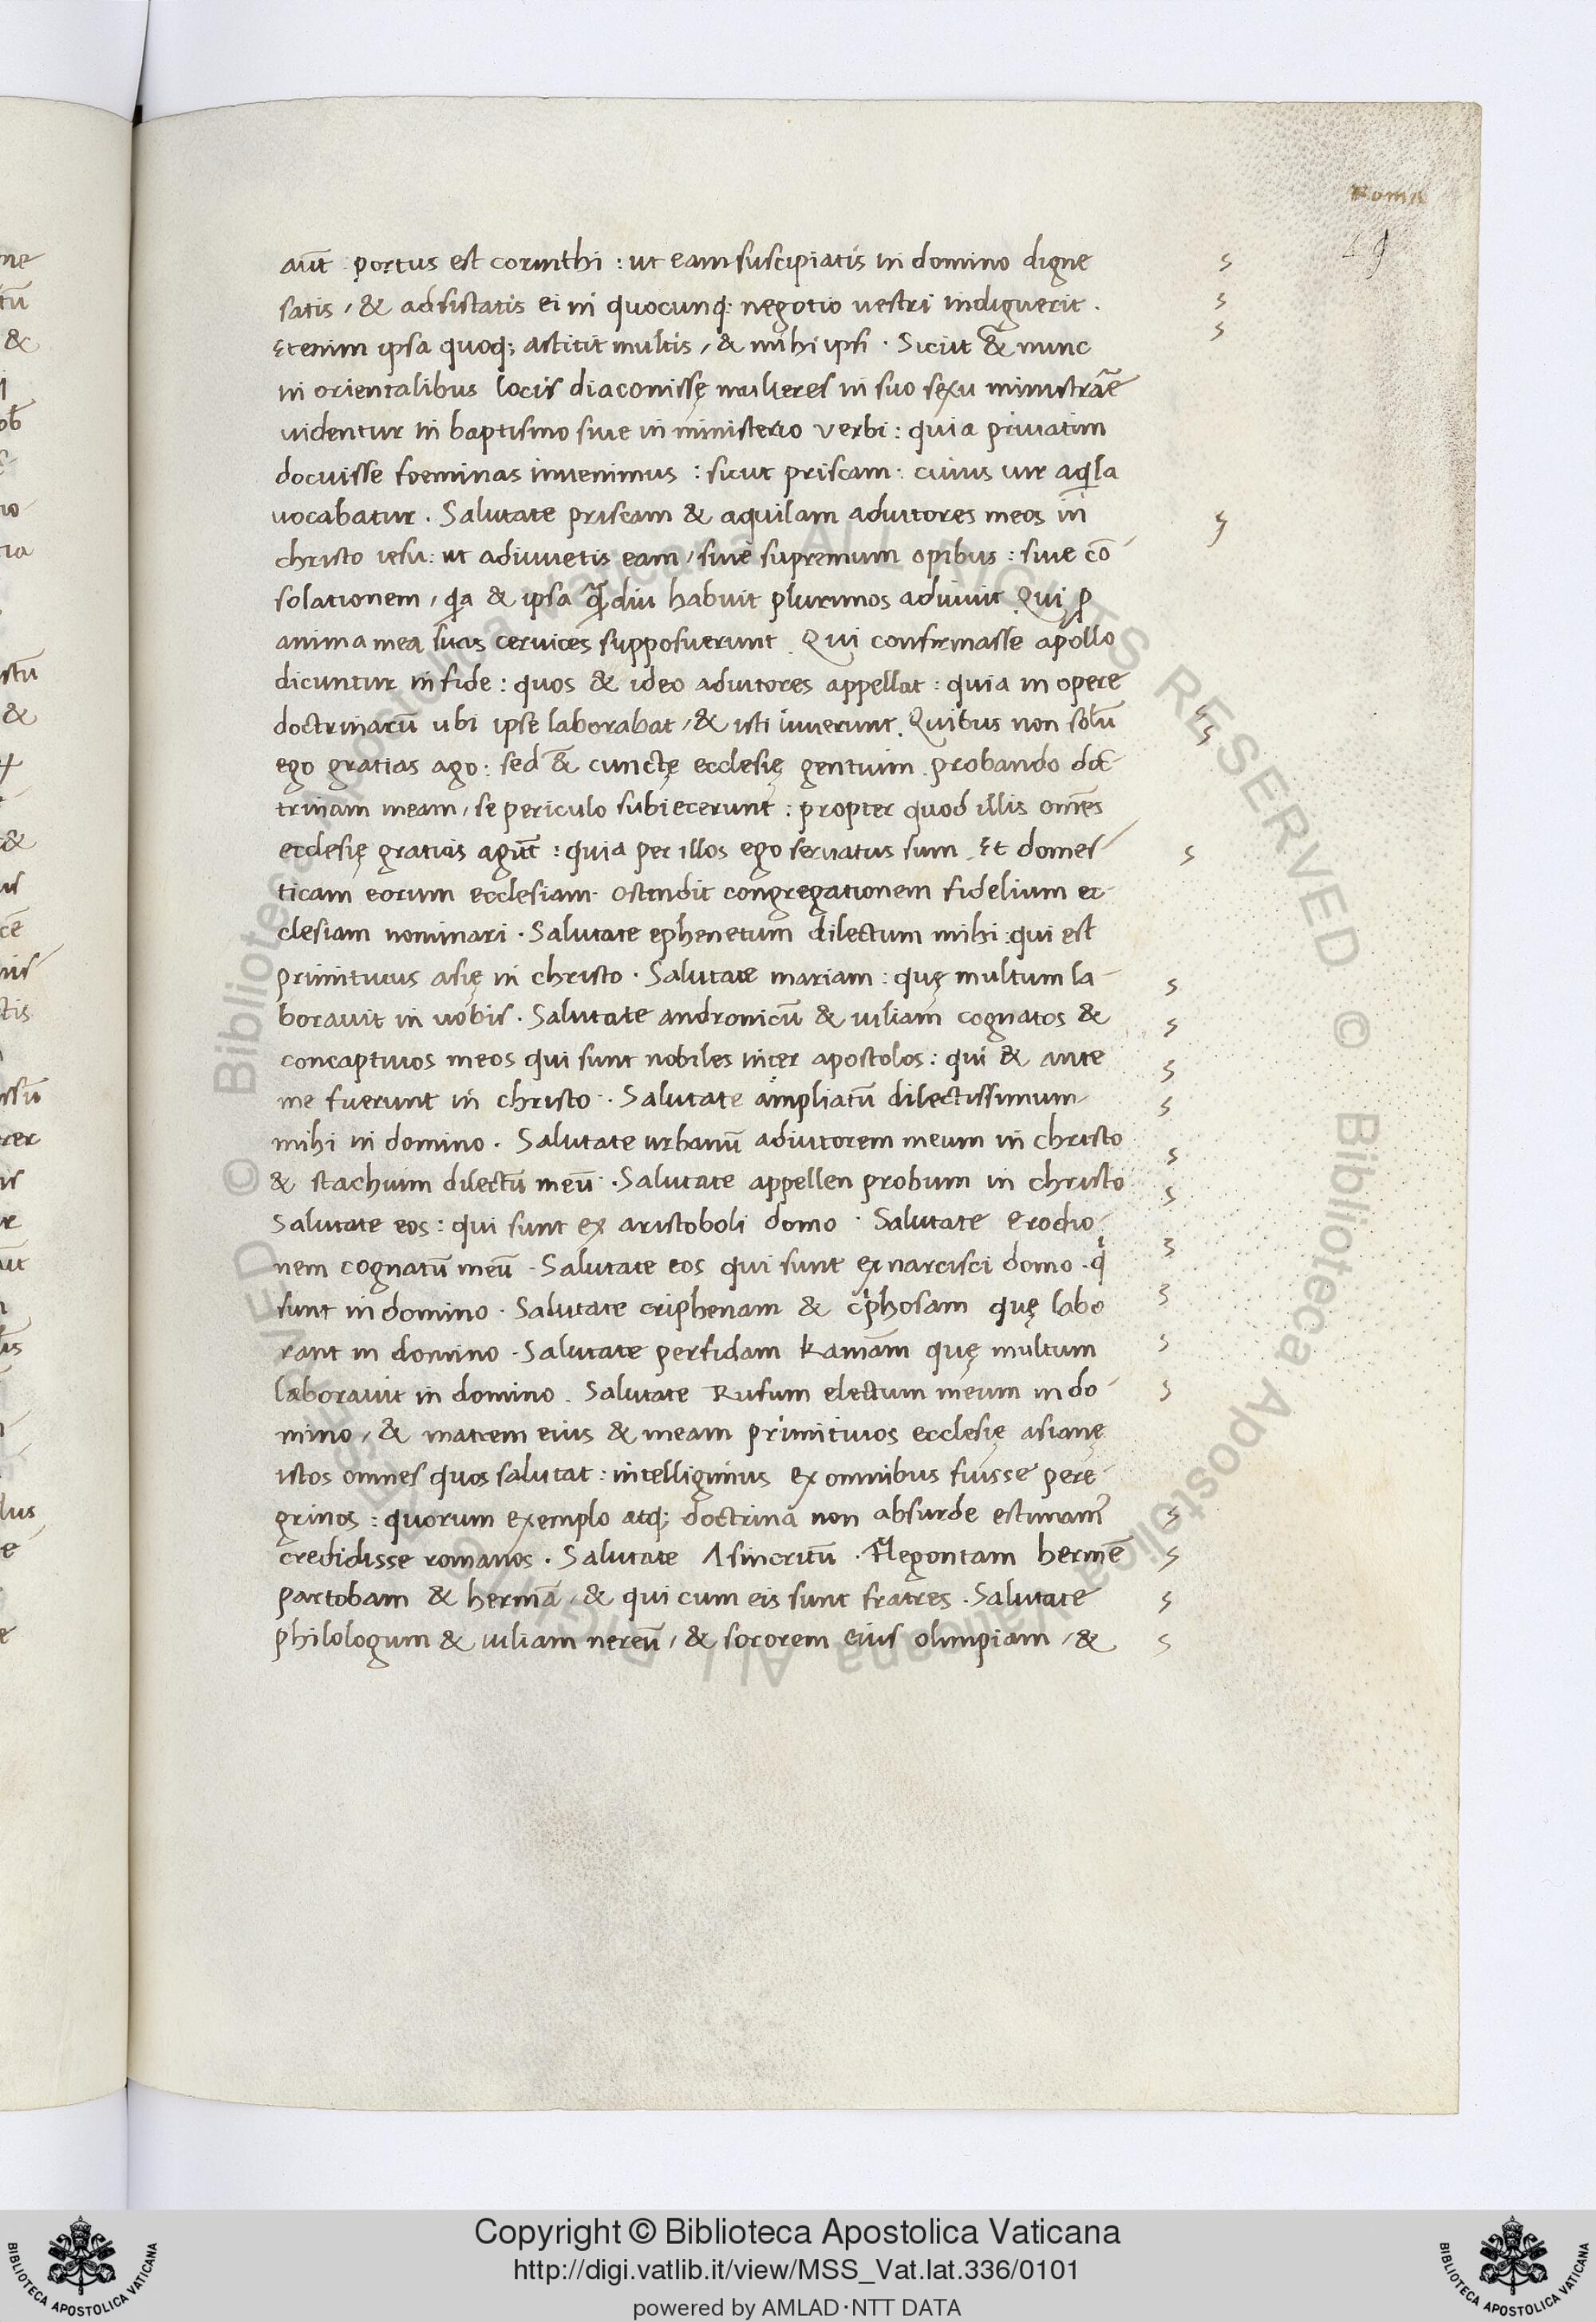 Roma
49
aūt portus est corinthi : ut eam suscipiatis in domino digne
satis / & adsistatis ei in quocunq: negotio vestri indiguerit .
Etenim ipsa quoq; astitit multis / & mihi ipsi . Sicut & nunc
in orientalibus locis diaconissę mulieres in suo sexu ministrāe
uidentur in baptismo siue in ministerio verbi : quia priuatim
docuisse foeminas inuenimus : sicut priscam . cuius uir aq̄la
uocabatur . Salutate priscam & aquilam adiutores meos in
christo iesu : ut adiuuetis eam / siue supremum opibus : siue cō
solationem / q̄a & ipsa q̄diu habuit plurimos adiuuit . Qui p̄
anima mea suas ceruices supposuerunt . Qui confirmasse apollo
dicuntur in fide : quos & ideo adiutores appellat : quia in opere
doctrinarū ubi ipse laborabat / & isti iuuerunt . Quibus non solū
ego gratias ago : sed & cunctę ecclesię gentium . probando doc-
trinam meam / se periculo subiecerunt : propter quod illis om̄es
ecclesię gratias agūt : quia per illos ego seruatus sum . Et domes-
ticam eorum ecclesiam . ostendit congregationem fidelium ec-
clesiam nominari . Salutate ephenetum dilectum mihi : qui est
primitiuus asię in christo . Salutate mariam : quę multum la-
borauit in uobis . Salutate andronicū & iuliam cognatos &
concaptiuos meos qui sunt nobiles inter apostolos : qui & ante
me fuerunt in christo . Salutate ampliatū dilectissimum
mihi in domino . Salutate urbanū adiutorem meum in christo
& stachium dilectū meū . Salutate appellen probum in christo
Salutate eos : qui sunt ex aristoboli domo . Salutate erodio-
nem cognatū meū . Salutate eos qui sunt ex narcisci domo . q̇
sunt in domino . Salutate triphenam & tⁱphosam quę labo
rant in domino . Salutate perfidam kar̄nam quę multum
laborauit in domino . Salutate Rufum electum meum in do-
mino / & matrem eius & meam primitiuos ecclesię asianę
istos omnes quos salutat : intelligimus ex omnibus fuisse pere-
grinos : quorum exemplo atq; doctrina non absurde estimam᷑
credidisse romanos . Salutate Asincritū . Flegontam hermē
partobam & hermā / & qui cum eis sunt fratres . Salutate
philologum & iuliam nereū / & sororem eius olimpiam / &
© Biblioteca Apostolica Vaticana ALL RIGHTS RESERVED © Biblioteca Apostolica Vaticana ALL RIGHTS RESERVED
Copyright © Biblioteca Apostolica Vaticana
http://digi.vatlib.it/view/MSS_Vat.lat.336/0101
powered by AMLAD·NTT DATA
BIBLIOTECA APOSTOLICA VATICANA
BIBLIOTECA APOSTOLICA VATICANA